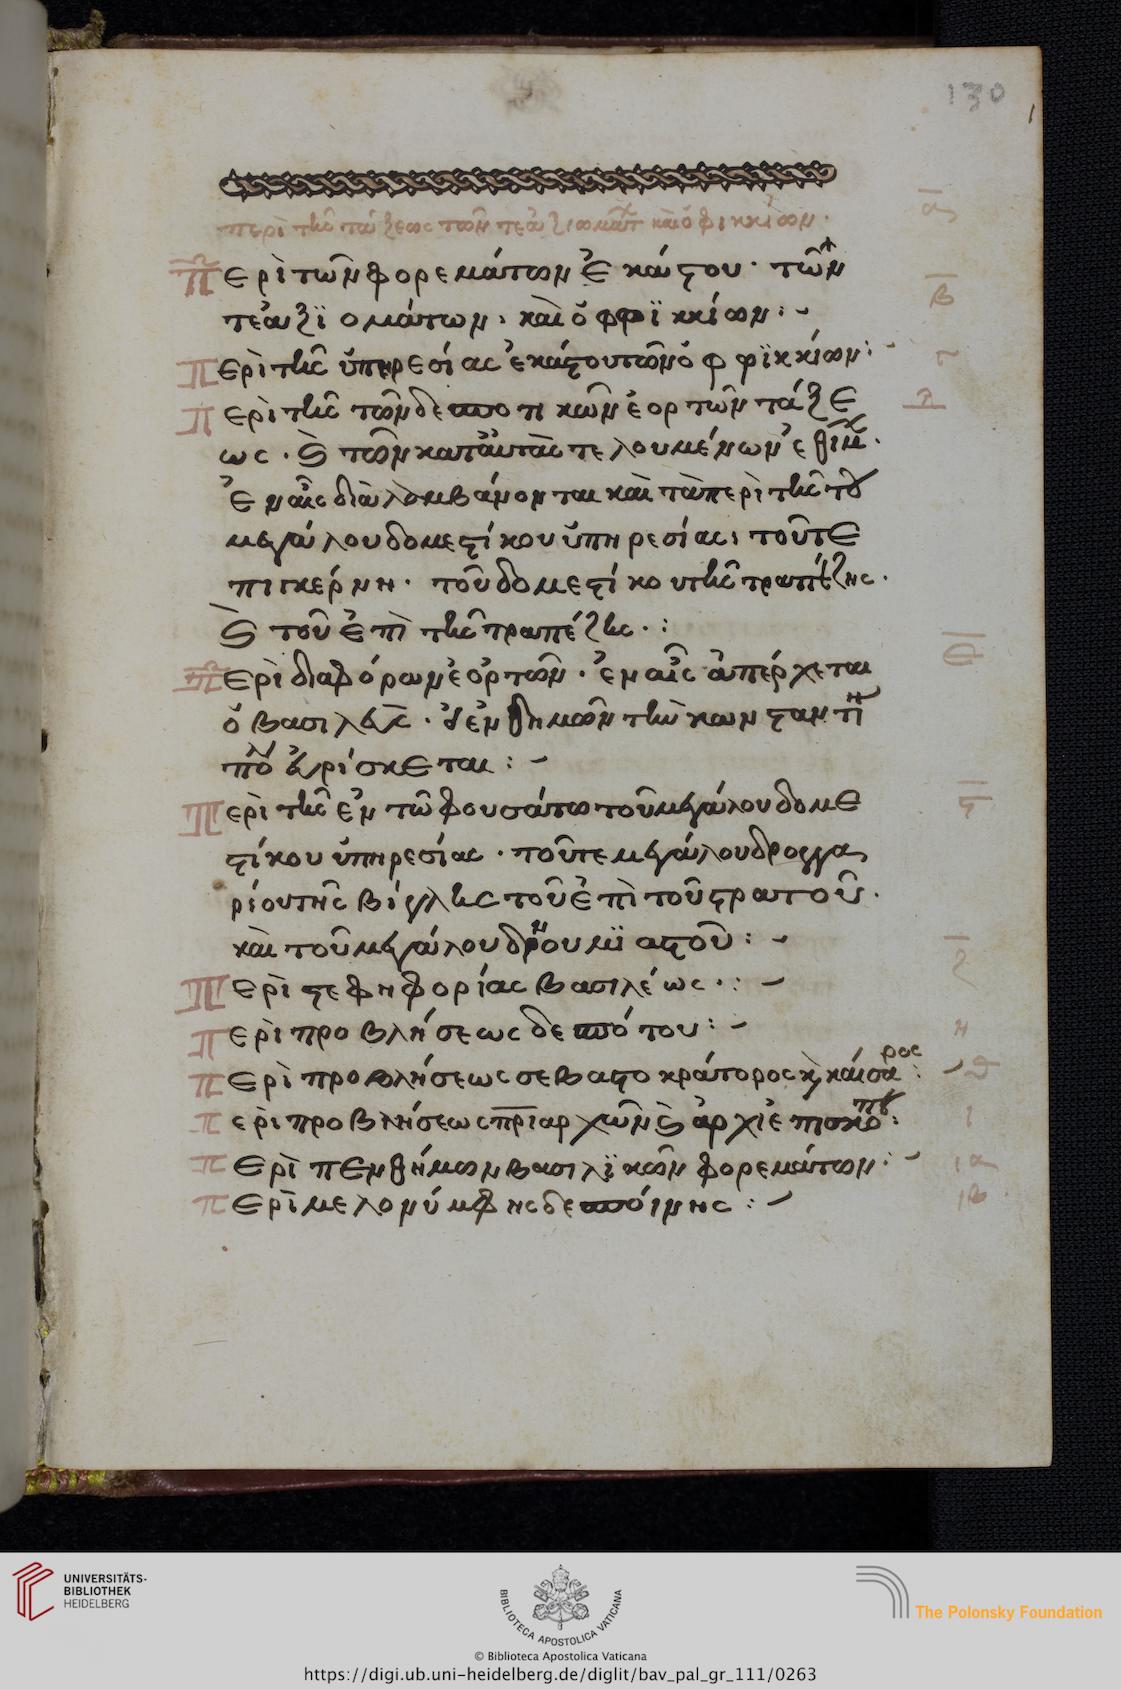 130
περὶ τῆς τάξεως τῶν τε ἀξιωμάτ καὶ ὀφικκίων· ᾱ
Περὶ τῶν φορεμάτων ἑκάστου· τῶν β̄
τε ἀξϊομάτων, καὶ ὀφφϊκκίων:
Περὶ τῆς ὑπηρεσίας ἑκάστου τῶν ὀφφϊκκίων: γ
Περὶ τῆς τῶν δεσποτικῶν ἑορτῶν τάξε δ
ως. καὶ τῶν κατ αὐτὰς τελουμένων ἐθίμ.
ἐν αἷς διαλαμβάνονται καὶ τὰ περὶ τῆς τοῦ
μεγάλου δομεστίκου ὑπηρεσίας, τοῦ τε
πιγκέρνη. τοῦ δομεστίκου τῆς τραπέζης.
καὶ τοῦ ἐπὶ τῆς τραπέζης.:
Περὶ διαφόρων ἑορτῶν. ἐν αἷς ἀπέρχεται ε̄
ὁ βασιλεὺς. ἐνδημῶν τῆ κωνσταντι
εὑρίσκεται:
Περὶ τῆς ἐν τῶ φουσάτω τοῦ μεγάλου δομε ϛ̄
στίκου ὑπηρεσίας. τοῦ τε μεγάλου δρουγγα
ρίου τῆς βίγλης τοῦ ἐπὶ τοῦ στρατοῦ.
καὶ τοῦ μεγάλου δρουμϊαστοῦ:
Περὶ στεφηφορίας βασιλέως.: ζ̄
Περὶ προβλήσεως δεσπότου: η
Περὶ προβλήσεως σεβαστοκράτορος καὶ καίσαρος: θ
Περὶ προβλήσεως πριαρχῶν καὶ ἀρχιεπισκόπου: ι
Περὶ πενθήμων βασιλϊκῶν φορεμάτων: ια
Περὶ μελονύμφης δεσποίνης: ιβ
UNIVERSITÄTS-
BIBLIOTHEK
HEIDELBERG
BIBLIOTECA APOSTOLICA VATICANA
The Polonsky Foundation
© Biblioteca Apostolica Vaticana
https://digi.ub.uni-heidelberg.de/diglit/bav_pal_gr_111/0263